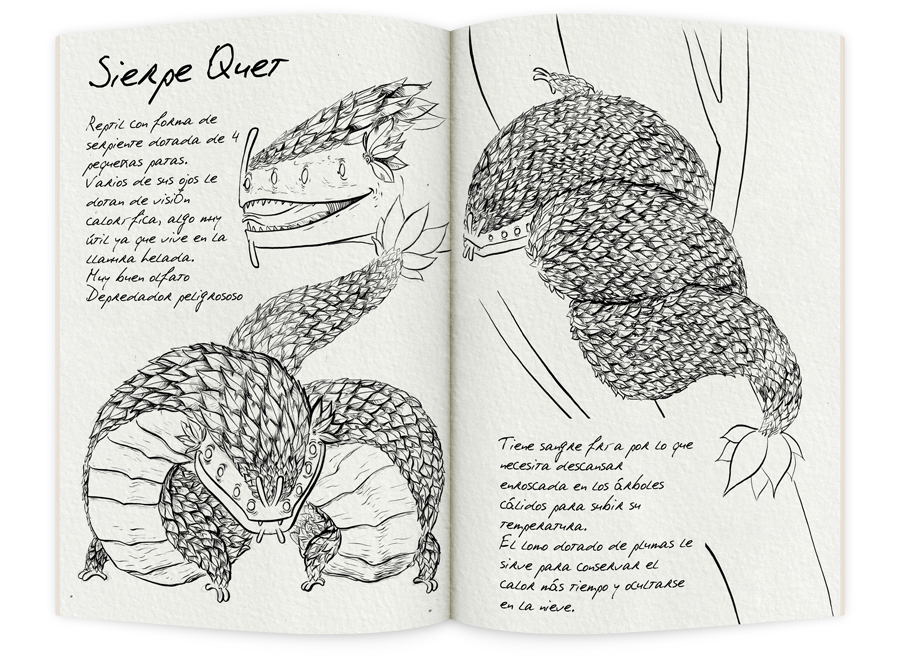 Sierpe Quet
Reptil con forma de
serpiente dotada de 4
pequeñas patas.
Varios de sus ojos le
dotan de visión
calorífica, algo muy
útil ya que vive en la
llanura helada.
Muy buen olfato
Depredador peligrososo
Tiene sangre fría por lo que
necesita descansar
enroscada en los árboles
cálidos para subir su
temperatura.
El lomo dotado de plumas le
sirve para conservar el
calor más tiempo y ocultarse
en la nieve.